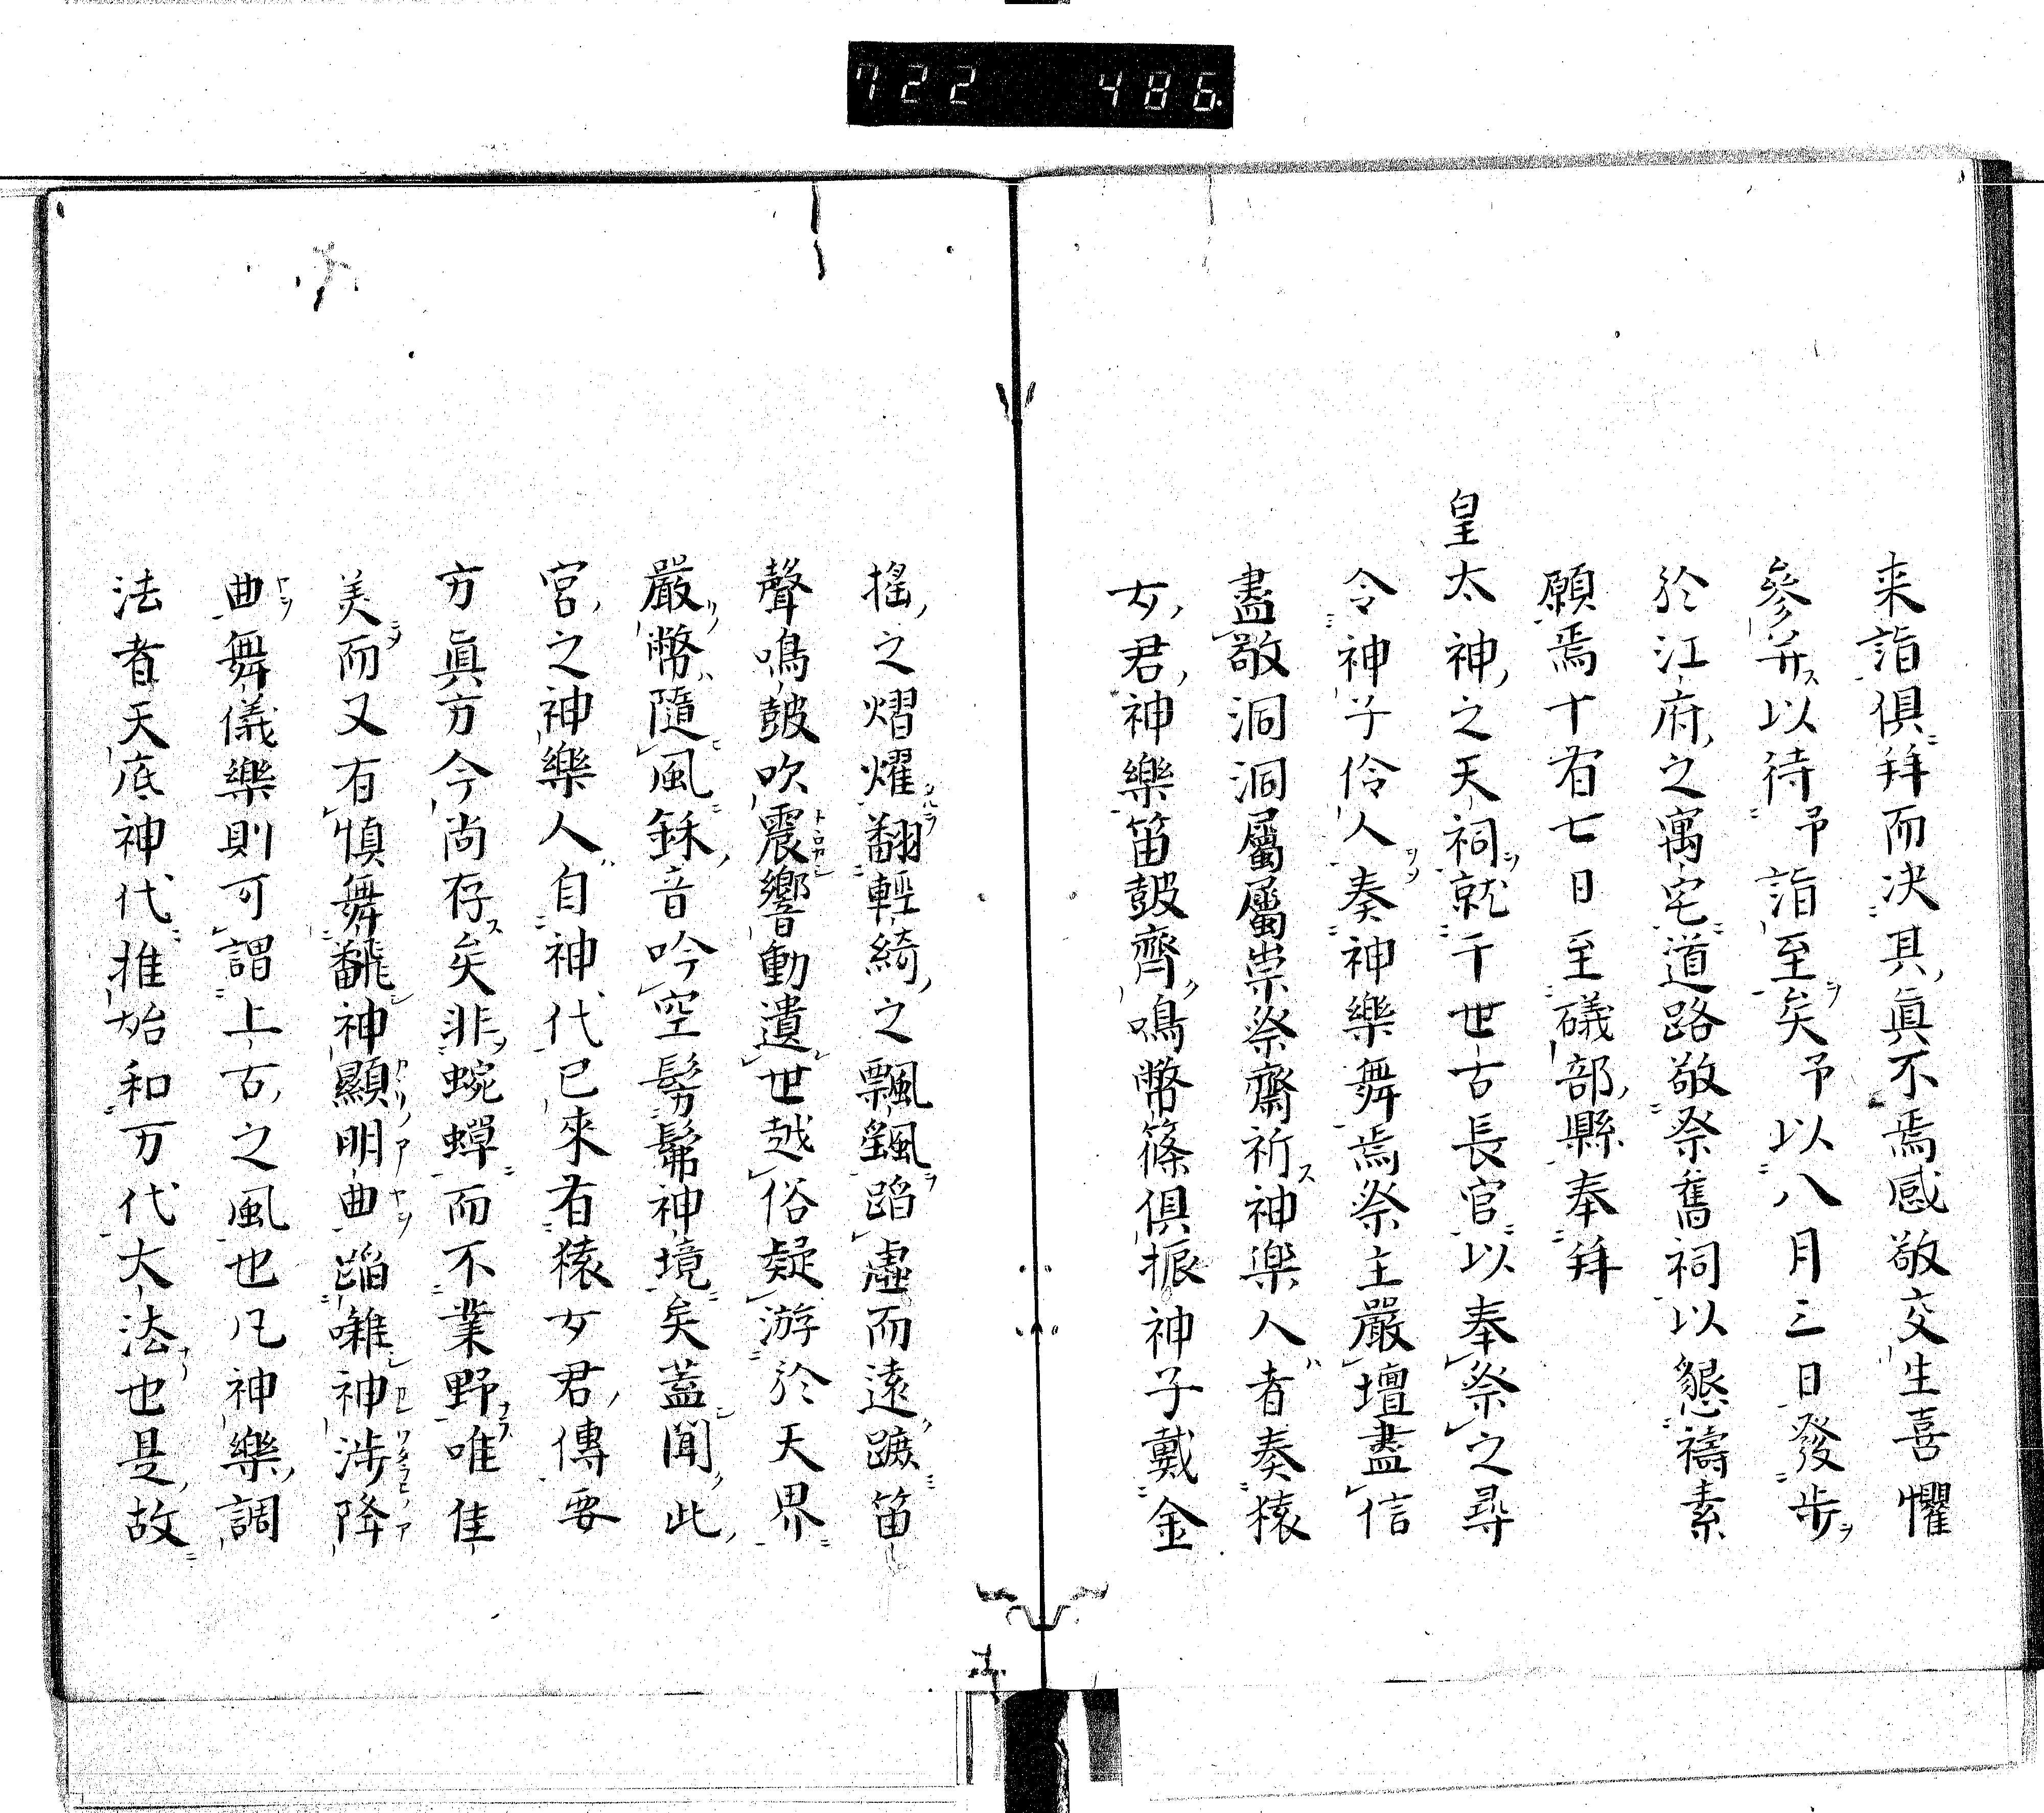 722 486.
来詣俱拜而决其眞不焉感敬交生喜懼
參并以待予詣至矣予以八月三日發步
於江府之寓宅道路敬祭舊祠以懇禱素
願焉十有七日至礒部縣奉拜
皇太神之天祠就千世古長官以奉祭之尋
令神子伶人奏神樂舞焉祭主嚴壇盡信
盡敬洞洞屬屬崇祭齋祈神楽人者奏猿
女君神樂笛皷齊鳴幣篠俱振神子戴金
搖之熠燿翻輕綺之飄颻蹈虛而遠蹠笛
聲鳴皷吹震響動遺世越俗疑游於天界
嚴幣隨風鉌音吟空髣髴神境矣蓋聞此
宮之神樂人自神代已來有猿女君傳要
方眞方今尚存矣非蜿蟬而不業野唯佳
美而又有慎舞飜神顯明曲蹈囃神渉降
曲舞儀樂則可謂上古之風也凡神樂調
法者天底神代推始和万代大法也是故